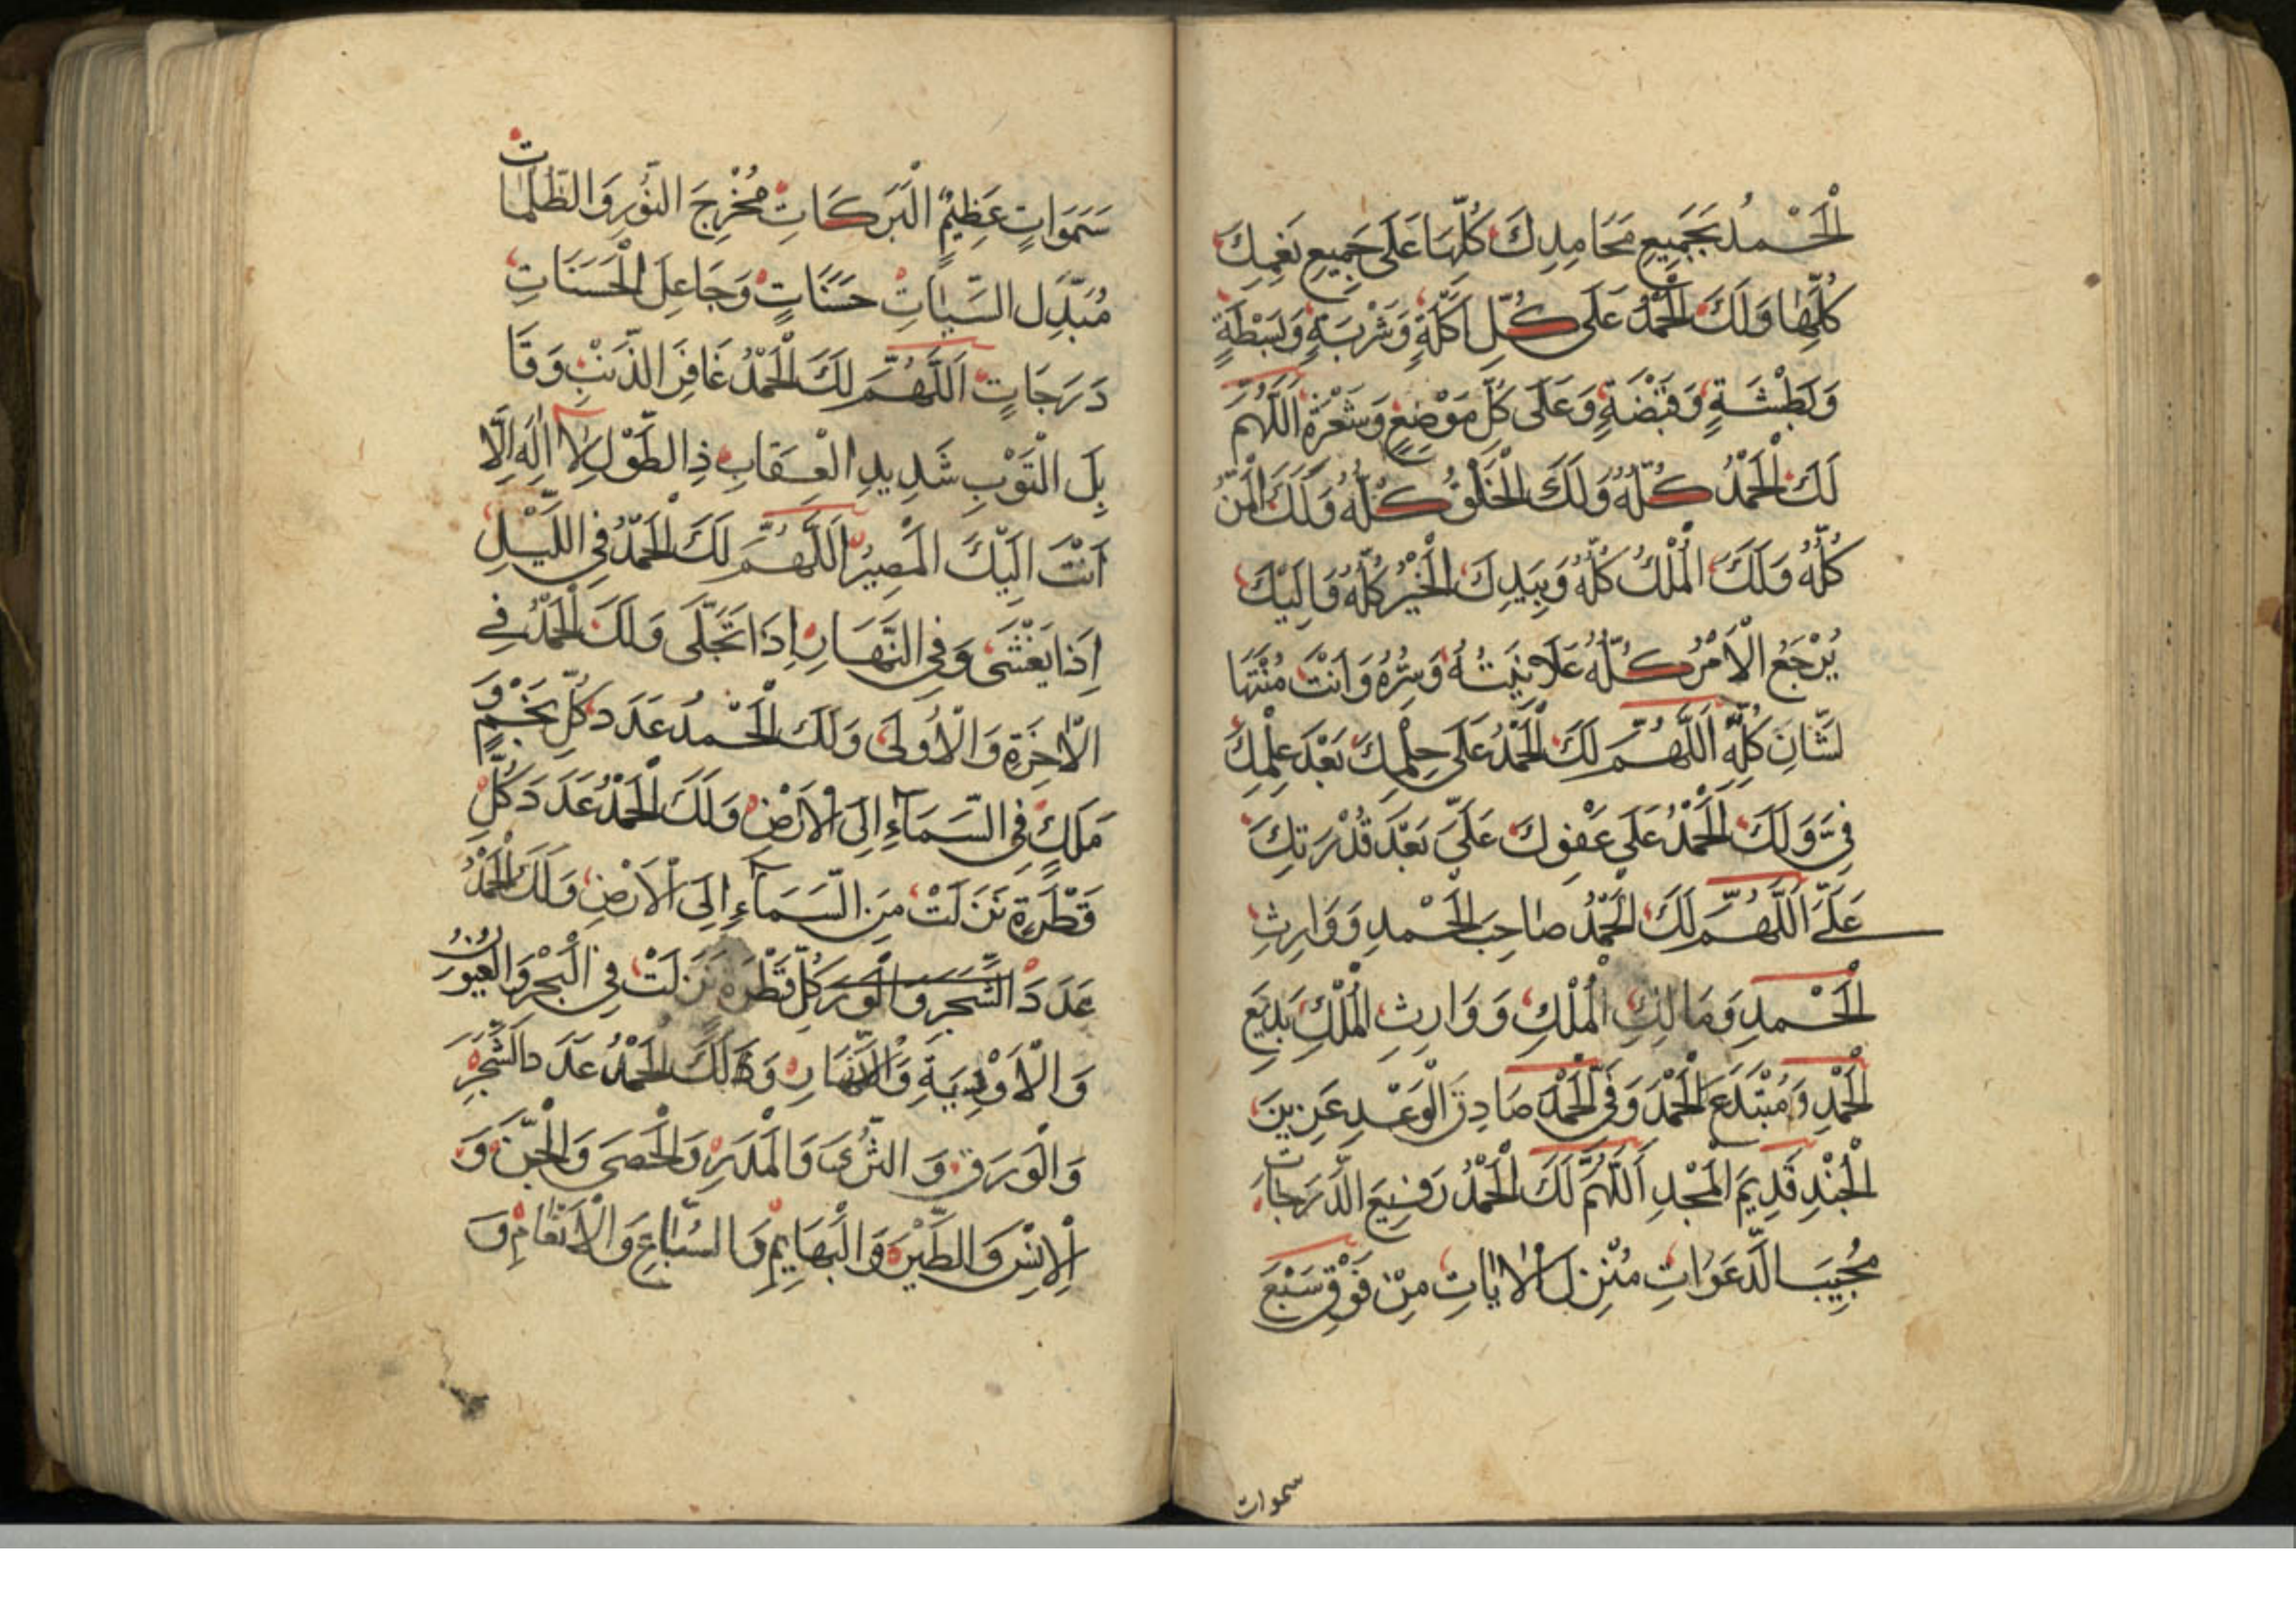 الْحَمْدُ بِجَمِيعِ مَحَامِدِكَ كُلِّهَا عَلَى جَمِيعِ نِعَمِكَ
كُلِّهَا وَلَكَ الْحَمْدُ عَلَى كُلِّ اَكْلَةٍ وَشَرْبَةٍ وَبَسْطَةٍ
وَبَطْشَةٍ وَقَبْضَةٍ وَعَلَى كُلِّ مَوْضِعٍ وَشَعْرَةٍ اَللَّهُمَّ
لَكَ الْحَمْدُ كُلُّهُ وَلَكَ الْخَلْقُ كُلُّهُ وَلَكَ الْمَنُّ
كُلُّهُ وَلَكَ الْمُلْكُ كُلُّهُ وَبِيَدِكَ الْخَيْرُ كُلُّهُ وَاِلَيْكَ
يُرْجَعُ الْاَمْرُ كُلُّهُ عَلَانِيَتُهُ وَسِرُّهُ وَاَنْتَ مُنْتَهَا
لشَّانِ كُلِّهِ اَللَّهُمَّ لَكَ الْحَمْدُ عَلَى حِلْمِكَ بَعْدَ عِلْمِكَ
فِيَّ وَلَكَ الْحَمْدُ عَلَى عَفْوِكَ عَلَيَّ بَعْدَ قُدْرَتِكَ
عَلَيَّ اَللَّهُمَّ لَكَ الْحَمْدُ صَاحِبَ الْحَمْدِ وَوَارِثَ
الْحَمْدِ وَمَالِكَ الْمُلْكِ وَوَارِثَ الْمُلْكِ بَدِيعَ
الْحَمْدِ وَمُبْتَدِعَ الْحَمْدِ وَفِيَّ الْحَمْدِ صَادِقَ الْوَعْدِ عَزِيزَ
الْجُنْدِ قَدِيمَ الْمَجْدِ اَللَّهُمَّ لَكَ الْحَمْدُ رَفِيعَ الدَّرَجَاتِ
مُجِيبَ الدَّعَوَاتِ مُنْزِلَ الْاٰيَاتِ مِنْ فَوْقِ سَبْعَ
سموات
سَمَوَاتٍ عَظِيمَ الْبَرَكَاتِ مُخْرِجَ النُّورِ وَالظُّلُمَاتِ
مُبَدِّلَ السَّيِّاٰتِ حَسَنَاتٍ وَجَاعِلَ الْحَسَنَاتِ
دَرَجَاتٍ اَللَّهُمَّ لَكَ الْحَمْدُ غَافِرَ الذَّنْبِ وَقَا
بِلَ التَّوْبِ شَدِيدِ الْعِقَابِ ذِالطَّوْلِ لَا اِلٰهَ اِلَّا
اَنْتَ اِلَيْكَ الْمَصِيرُ اَللَّهُمَّ لَكَ الْحَمْدُ فِي اللَّيْلِ
اِذَا يَغْشَى وَفِي النَّهَارِ اِذَا تَجَلَّى وَلَكَ الْحَمْدُ فِي
الْاٰخِرَةِ وَالْاُولَى وَلَكَ الْحَمْدُ عَدَدَ كُلِّ نَجْمٍ وَ
مَلَكٍ فِي السَّمَاءِ اِلَى الْاَرْضِ وَلَكَ الْحَمْدُ عَدَدَ كُلِّ
قَطْرَةٍ نَزَلَتْ مِنَ السَّمَاءِ اِلَى الْاَرْضِ وَلَكَ الْحَمْدُ
عَدَدَ الشَّجَرِ وَالْوَرَ كُلِّ قَطْرَةٍ نَزَلَتْ فِي الْبَحْرِ وَالْعُيُونِ
وَالْاَوْدِيَةِ وَالْاَنْهَارِ وَلَكَ الْحَمْدُ عَدَدَ الشَّجَرِ
وَالْوَرَقِ وَالثَّرَى وَالْمَدَرِ وَالْحَصَى وَالْجِنِّ وَ
الْاِنْسِ وَالطَّيْرِ وَالْبَهَايِمِ وَالسِّبَاعِ وَالْاَنْعَامِ وَ